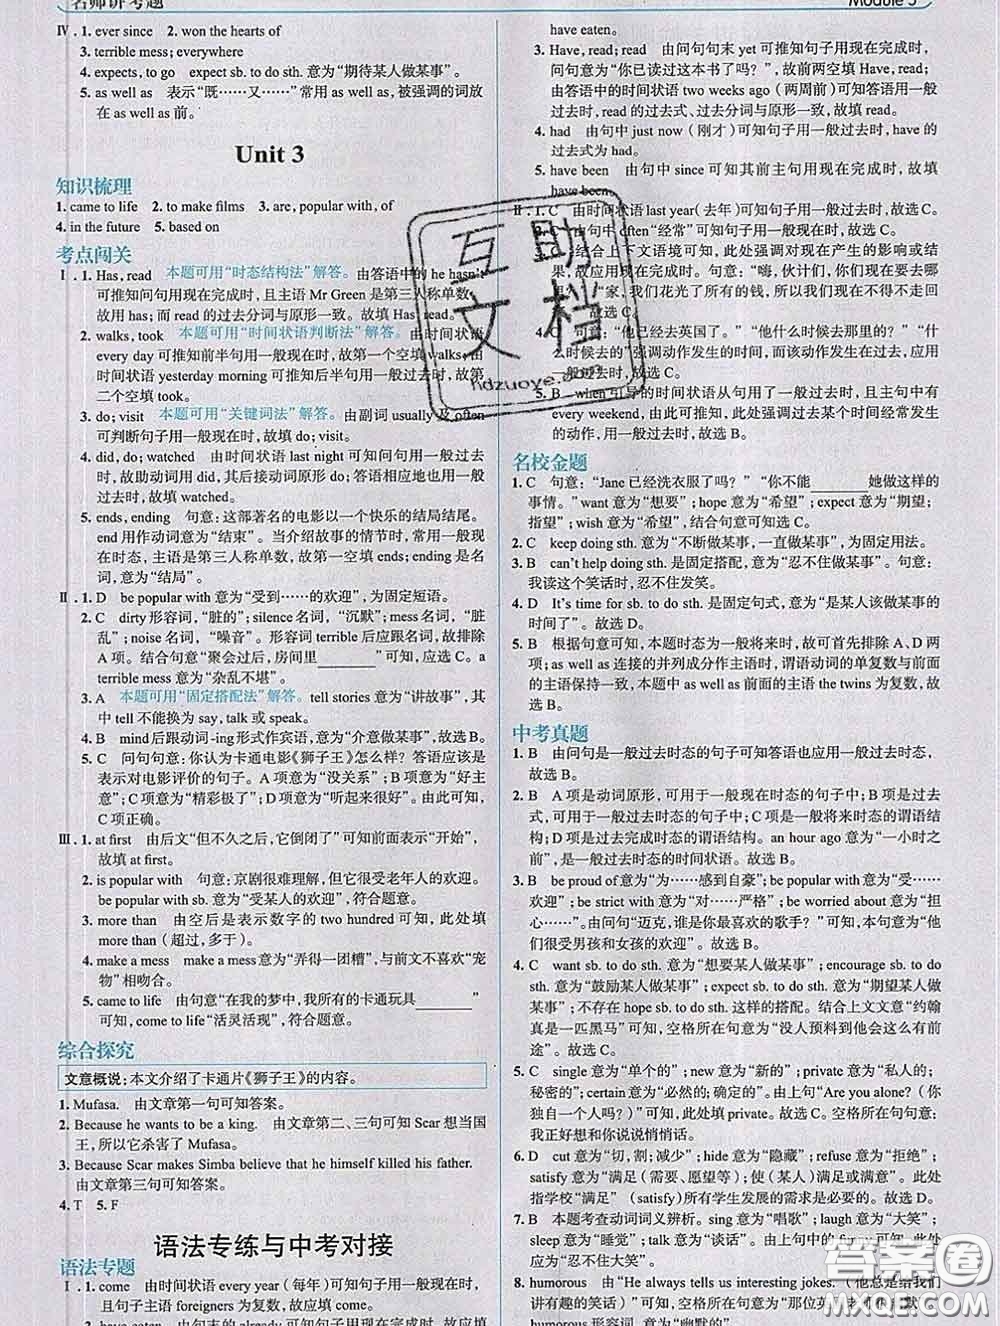 名师讲考题
Module 5
Ⅳ. 1. ever since  2. won the hearts of
3. terrible mess; everywhere
4. expects, to go  expect sb. to do sth. 意为“期待某人做某事”。
5. as well as  表示“既……又……”常用 as well as,被强调的词放
在 as well as 前。
Unit 3
知识梳理
1. came to life  2. to make films  3. are, popular with, of
4. in the future  5. based on
考点闯关
Ⅰ. 1. Has, read  本题可用“时态结构法”解答。由答语中的 he hasn't
可推知问句用现在完成时,且主语 Mr Green 是第三人称单数,
故用 has; 而 read 的过去分词与原形一致。故填 Has, read。
2. walks, took  本题可用“时间状语判断法”解答。由时间状语
every day 可推知前半句用一般现在时,故第一个空填 walks,由
时间状语 yesterday morning 可推知后半句用一般过去时,故第
二个空填 took。
3. do; visit  本题可用“关键词法”解答。由副词 usually 及 often
可判断句子用一般现在时,故填 do; visit。
4. did, do; watched  由时间状语 last night 可知问句用一般过去
时,故助动词用 did,其后接动词原形 do; 答语相应地也用一般
过去时,故填 watched。
5. ends, ending  句意:这部著名的电影以一个快乐的结局结尾。
end 用作动词意为“结束”。当介绍故事的情节时,常用一般现
在时态,主语是第三人称单数,故第一空填 ends; ending 是名
词,意为“结局”。
Ⅱ. 1. D  be popular with 意为“受到……的欢迎”,为固定短语。
2. C  dirty 形容词,“脏的”; silence 名词,“沉默”; mess 名词,“脏
乱”; noise 名词,“噪音”。形容词 terrible 后应跟名词,故排除
A 项。结合句意“聚会过后,房间里________”可知,应选 C。a
terrible mess 意为“杂乱不堪”。
3. A  本题可用“固定搭配法”解答。tell stories 意为“讲故事”,其
中 tell 不能换为 say, talk 或 speak。
4. B  mind 后跟动词-ing 形式作宾语,意为“介意做某事”,故选 B。
5. C  问句句意:你认为卡通电影《狮子王》怎么样?答语应该是
表示对电影评价的句子。A 项意为“没关系”; B 项意为“好主
意”; C 项意为“精彩极了”; D 项意为“听起来很好”。由此可知,
C 项正确。
Ⅲ. 1. at first  由后文“但不久之后,它倒闭了”可知前面表示“开始”,
故填 at first。
2. is popular with  句意:京剧很难理解,但它很受老年人的欢迎。
be popular with sb. 意为“受某人的欢迎”,符合题意。
3. more than  由空后是表示数字的 two hundred 可知,此处填
more than (超过,多于)。
4. make a mess  make a mess 意为“弄得一团糟”,与前文不喜欢“宠
物”相吻合。
5. came to life  由句意“在我的梦中,我所有的卡通玩具________”
可知, come to life“活灵活现”,符合题意。
综合探究
文意概说:本文介绍了卡通片《狮子王》的内容。
1. Mufasa.  由文章第一句可知答案。
2. Because he wants to be a king.  由文章第二、三句可知 Scar 想当国
王,所以它杀害了 Mufasa。
3. Because Scar makes Simba believe that he himself killed his father.
由文章第三句可知答案。
4. T  5. F
语法专练与中考对接
语法专题
Ⅰ. 1. come  由时间状语 every year (每年)可知句子用一般现在时,
且句子主语 foreigners 为复数,故应填 come。
2. have eaten  由句末的 already 可知句子用现在完成时,故填
have eaten.
3. Have, read; read  由问句句末 yet 可推知句子用现在完成时,
问句意为“你已读过这本书了吗?”,故前两空填 Have, read;
由答语中的时间状语 two weeks ago (两周前)可知答语用一般
过去时, read 的过去式、过去分词与原形一致,故填 read。
4. had  由句中 just now (刚才)可知句子用一般过去时, have 的
过去式为 had。
5. have been  由句中 since 可知其前主句用现在完成时,故填
have been。
Ⅱ. 1. C  由时间状语 last year(去年)可知用一般过去时,故选 C。
由句中 often“经常”可知句子用一般现在时,故选 B。
结合上下文语境可知,此处强调对现在产生的影响或结
果,故应用现在完成时。句意:“嗨,伙计们,你们现在要去哪
“家,我们花光了所有的钱,所以我们现在不得不走回
4. C  句意:“他已经去英国了。”“他什么时候去那里的?”“什
么时候去的”强调动作发生的时间,而该动作发生在过去,应用
一般过去时,故选 C。
5. B  when 引导的时间状语从句用了一般过去时,且主句中有
every weekend, 由此可推知,此处强调过去某个时间经常发生
的动作,用一般过去时,故选 B。
名校金题
1. C  句意:“Jane 已经洗衣服了吗?”“你不能________她做这样的
事情。”want 意为“想要”; hope 意为“希望”; expect 意为“期望;
指望”; wish 意为“希望”,结合句意可知选 C。
2. C  keep doing sth. 意为“不断做某事,一直做某事”,为固定用法。
3. B  can't help doing sth. 是固定搭配,意为“忍不住做某事”。句意:
我读这个笑话时,忍不住发笑。
4. D  It's time for sb. to do sth. 是固定句式,意为“是某人该做某事的
时间了”。故选 D。
5. B  根据句意可知,本题时态为一般将来时,故可首先排除 A、D 两
项; as well as 连接的并列成分作主语时,谓语动词的单复数与前面
的主语保持一致,本题中 as well as 前面的主语 the twins 为复数,故
选 B。
中考真题
1. B  由问句是一般过去时态的句子可知答语也应用一般过去时态,
故选 B。
2. B  A 项是动词原形,可用于一般现在时态的句子中; B 项是过去
式,可用于一般过去时态的句子中; C 项是一般将来时态的谓语结
构; D 项是过去完成时态的谓语结构。an hour ago 意为“一小时之
前”,是一般过去时态的时间状语。故选 B。
3. B  be proud of 意为“为……感到自豪”; be popular with 意为“受……
欢迎”; be strict with 意为“对……严格”; be worried about 意为“担
心……”。由问句“迈克,谁是你最喜欢的歌手?”可知,本句意为“他
们很受男孩和女孩的欢迎”。故选 B。
4. C  want sb. to do sth. 意为“想要某人做某事”; encourage sb. to do
sth. 意为“鼓励某人做某事”; expect sb. to do sth. 意为“期望某人做
某事”; 不存在 hope sb. to do sth. 这样的搭配。结合上文文意“约翰
真是一匹黑马”可知,空格所在句意为“没人预料到他会这么有前
途”。故选 C。
5. C  single 意为“单个的”; new 意为“新的”; private 意为“私人的;
秘密的”; certain 意为“必然的;确定的”。由上句“Are you alone? (你
独自一个人吗?)”可知,此处填 private。故选 C。空格所在句句意:
我正好想和你说说悄悄话。
6. D  cut 意为“切,割;减少”; hide 意为“隐藏”; refuse 意为“拒绝”;
satisfy 意为“满足(需要、愿望等);使(某人)满足或满意”。此处
指学校“满足”(satisfy)所有学生发展的需求是必要的。故选 D。
7. B  本题考查动词词义辨析。sing 意为“唱歌”; laugh 意为“大笑”;
sleep 意为“睡觉”; talk 意为“谈话”。由上句中的 funny 可知,此处应
为“忍不住大笑”。故选 B。
8. humorous  由“He always tells us interesting jokes. (他总是给我们
讲有趣的笑话)”可知,空格所在句意为“那位英
humorous 形容词,意为“幽默的”。
互助
文档
hdzuoye.com
答案圈
MXQE.COM